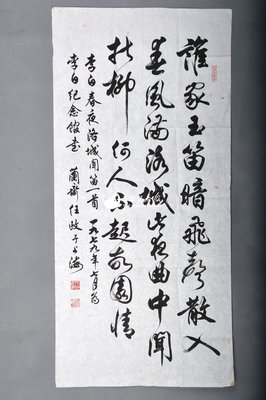 誰家玉笛暗飛聲散入
春風滿洛城此夜曲中聞
折柳何人不起故園情
李白春夜洛城聞笛一首一九七九年七月為
李白紀念館書蘭斋任政于上海